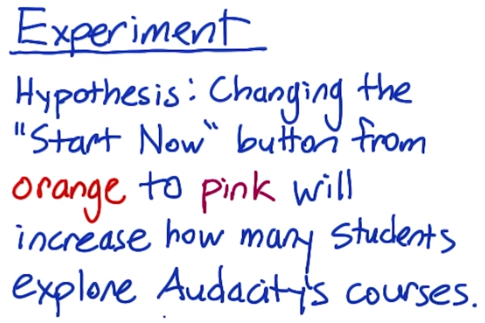 Experiment
Hypothesis: Changing the
"Start Now" button from
orange to pink will
increase how many students
explore Audacity's courses.